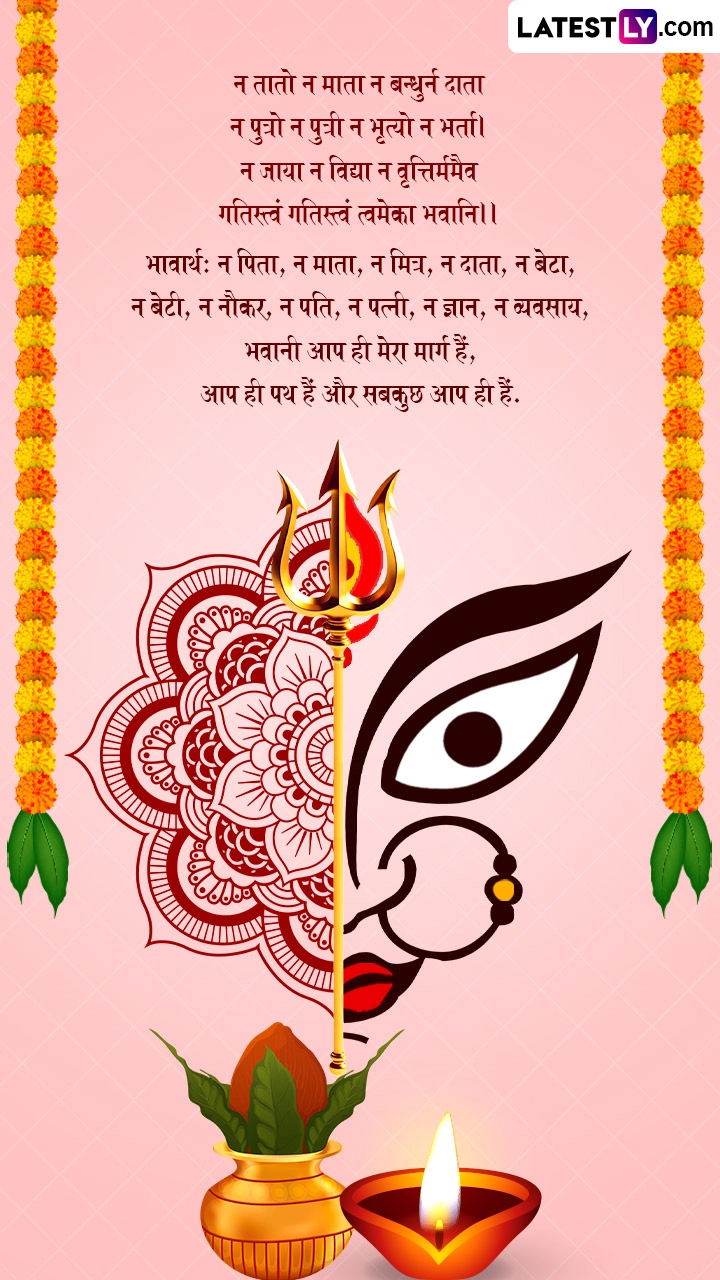 LATESTLY.com
न तातो न माता न बन्धुर्न दाता
न पुत्रो न पुत्री न भृत्यो न भर्ता।
न जाया न विद्या न वृत्तिर्ममैव
गतिस्त्वं गतिस्त्वं त्वमेका भवानि।।
भावार्थः न पिता, न माता, न मित्र, न दाता, न बेटा,
न बेटी, न नौकर, न पति, न पत्नी, न ज्ञान, न व्यवसाय,
भवानी आप ही मेरा मार्ग हैं,
आप ही पथ हैं और सबकुछ आप ही हैं.